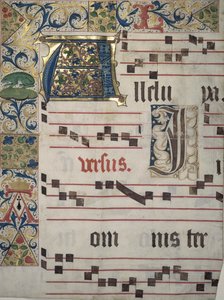 Allelu ya.
Versus. J
om nis ter